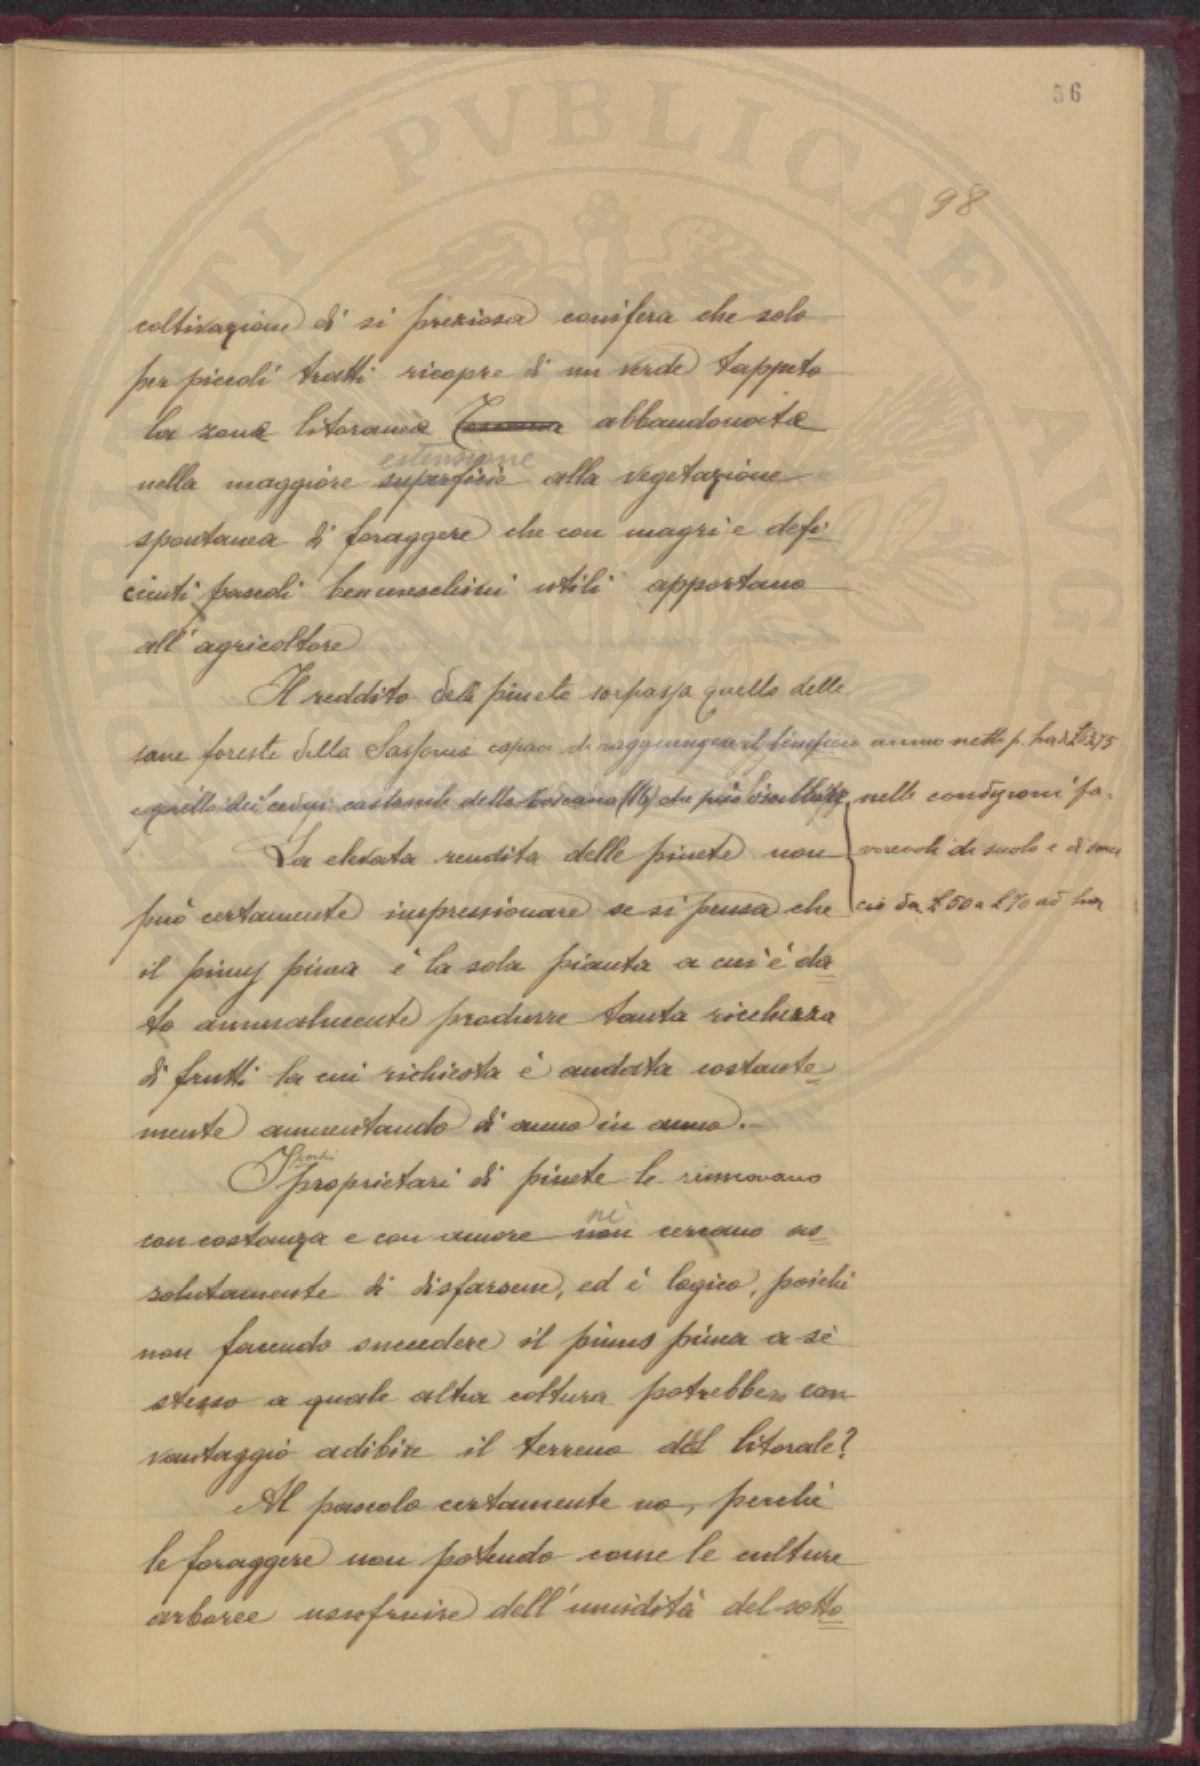 56
98
coltivazione di si preziosa conifera che solo
per piccoli tratti ricopre di un verde tappeto
la zona litoranea Toscana abbandonata
estensione
nella maggiore superficie alla vegetazione
spontanea di foraggere che con magri e defi
cienti pascoli ben meschini utili apportano
all'agricoltore
Il reddito delle pinete sorpassa quello delle
sane foreste della Sassonia capaci di raggiungere il beneficio annuo netto p. ha
e quello dei cedui castanili della toscana (16) che può oscillare nelle condizioni fa-
La elevata rendita delle pinete non
vorevoli di suolo e di
può certamente impressionare se si pensa che
cio da £ 50 a £ 70 ad ha
il pinus pinea è la sola pianta a cui è da
to annualmente produrre tanta ricchezza
di frutti la cui richiesta è andata costante
mente aumentando di anno in anno.-
pochi
I proprietari di pinete le rinnovano
nè
con costanza e con amore non cercano as
solutamente di disfarsene, ed è logico, poichè
non facendo succedere il pinus pinea a sè
stesso a quale altra coltura potrebbero con
vantaggio adibire il terreno del litorale?
Al pascolo certamente no, perchè
le foraggere non potendo come le culture
arboree usufruire dell'umidità del sotto